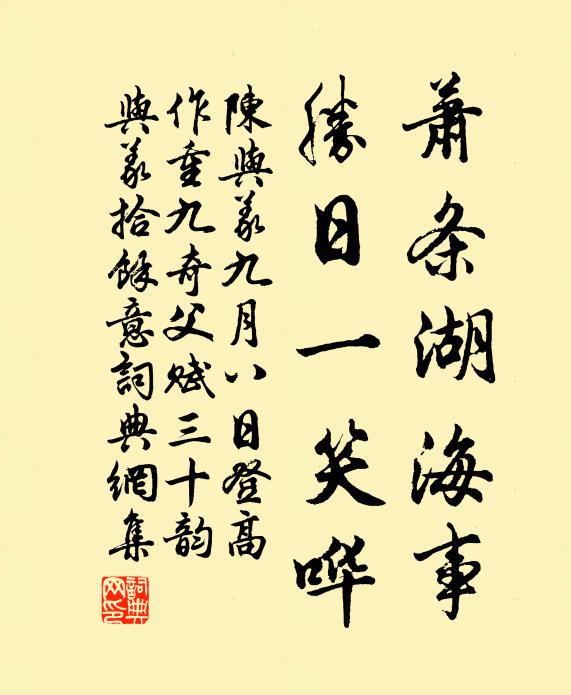 蕭条湖海事
勝日一笑哗
陳與義九月八日登高
作重九奇父赋三十韵
與義拾餘意詞典網集
詞典网印